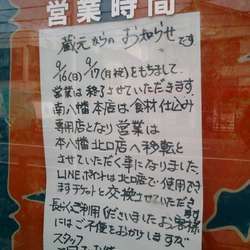 営業時間
蔵元からの お知らせです
9/16(日) 9/17(月祝)をもちまして
営業は終了させていただきます
南八幡本店は食材仕込み
専用店となり営業は
本八幡北口店へ移転と
させていただく事になりました。
LINEポイントは北口店で使用でき
ますチケットと交換させていただき
ます
長らくご利用くださいましたお客様
にはご不便をおかけしますが
スタッフ